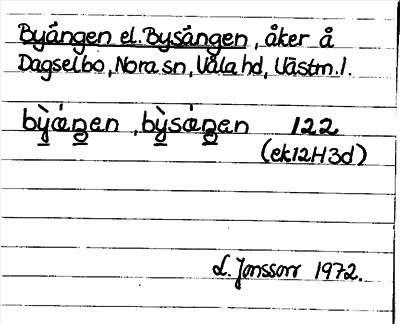 Byången el. Bysången, åker å
Dagselbo, Nora sn, Våla hd, Västm.l.
bỳǻŋen, bỳsǻŋen 122
(ek12H3d)
L. Jonsson 1972.